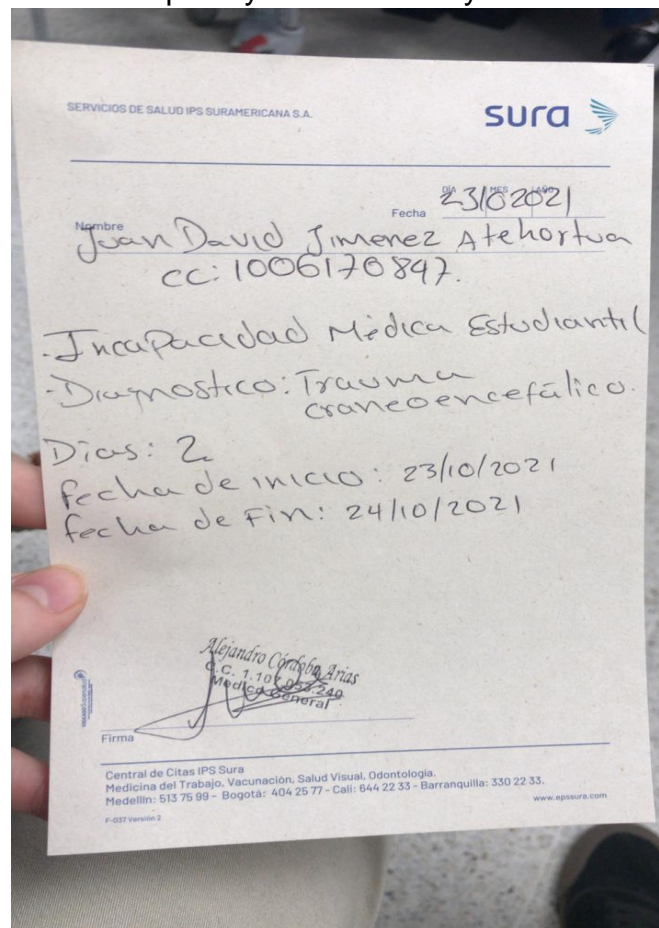 SERVICIOS DE SALUD IPS SURAMERICANA S.A.
sura
DÍA MES AÑO
Fecha 23/10/2021
Nombre
Juan David Jimenez Atehortua
CC: 1006170847.
- Incapacidad Médica Estudiantil
- Diagnostico: Trauma
craneoencefálico.
Dias: 2
fecha de inicio: 23/10/2021
fecha de Fin: 24/10/2021
Alejandro Córdoba Arias
C.C. 1.107.
Medico General
Firma
Central de Citas IPS Sura
Medicina del Trabajo, Vacunación, Salud Visual, Odontología.
Medellín: 513 75 99 - Bogotá: 404 25 77 - Cali: 644 22 33 - Barranquilla: 330 22 33.
www.epssura.com
F-037 Versión 2